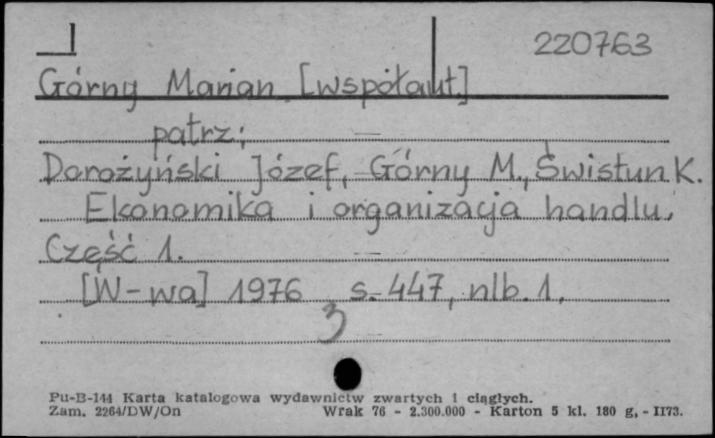 220763
Górny Marian [współaut.]
patrz:
Dorożyński Józef, Górny M., Świstun K.
Ekonomika i organizacja handlu.
Część 1.
[W-wa] 1976 s. 447, nlb. 1.
3
Pu-B-144 Karta katalogowa wydawnictw zwartych i ciągłych.
Zam. 2264/DW/On Wrak 76 - 2.300.000 - Karton 5 kl. 180 g, - II73.